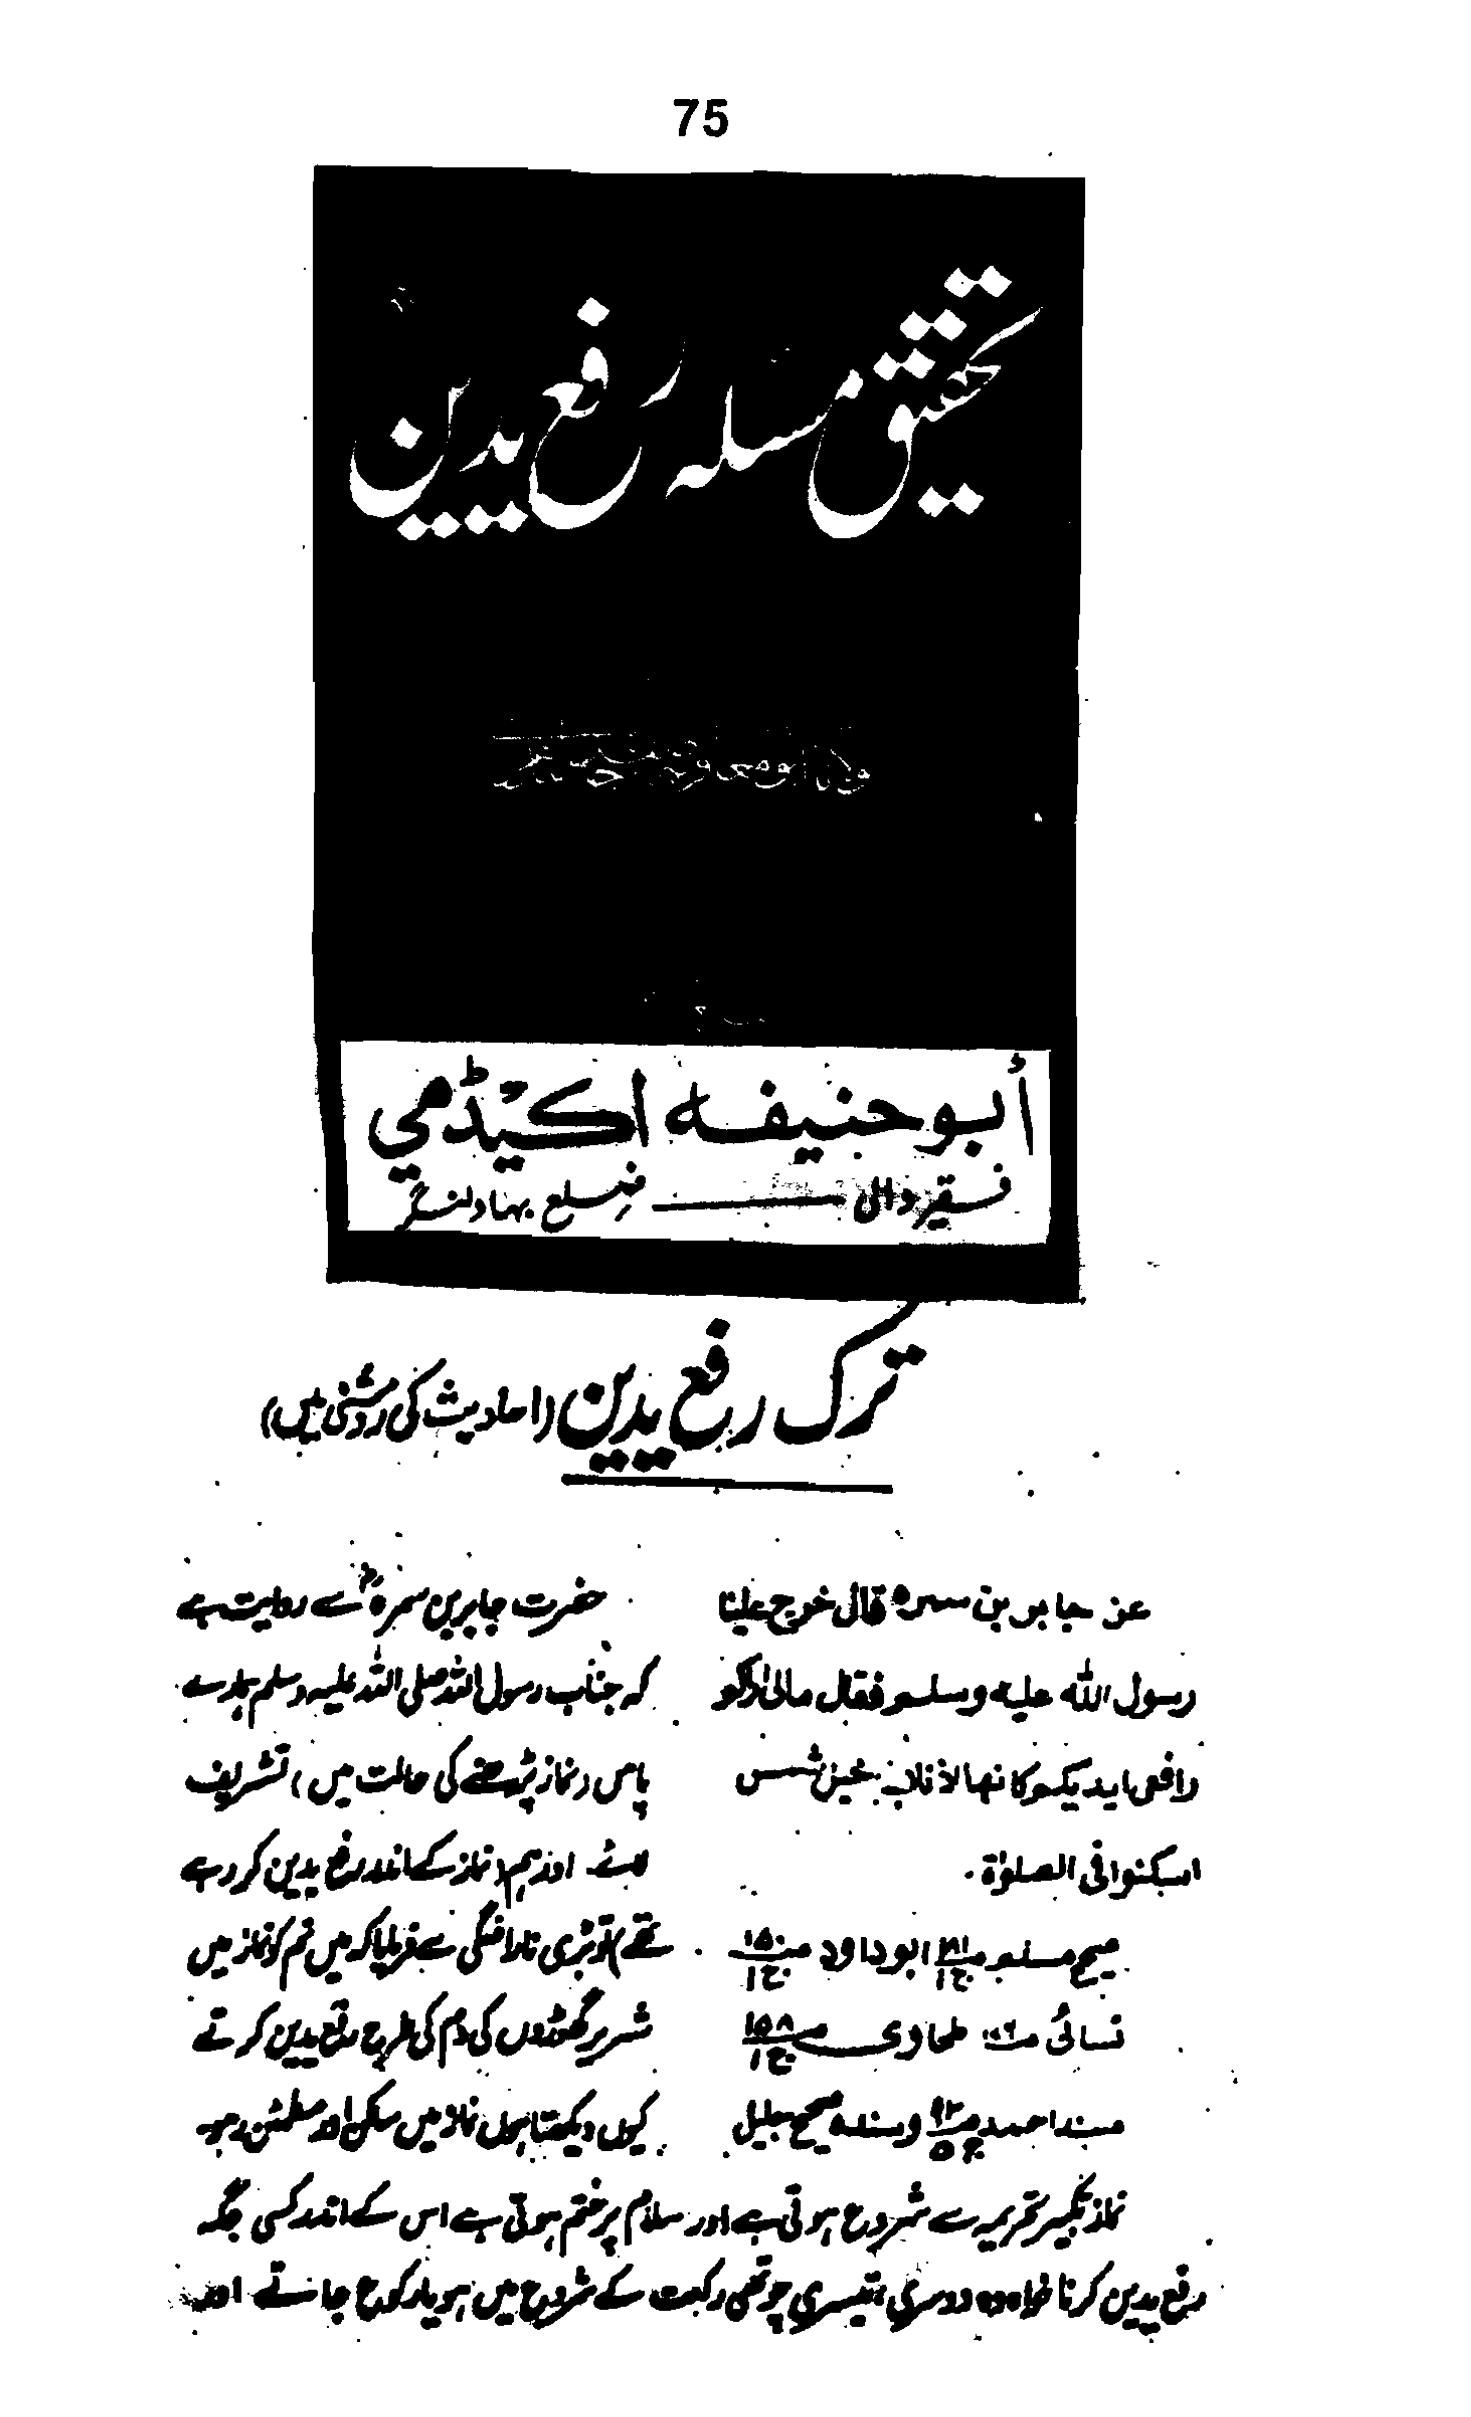 75
تحقیق مسئلہ رفع یدین
أبو حنیفہ اکیڈمی
فقیر والی ــــ ضلع بہاولنگر
ترک رفع یدین (احادیث کی روشنی میں)
عن جابر بن سمرہ قال خرج علینا
رسول اللہ علیہ وسلم فقال مالی اراکم
رافعی ایدیکم کانھا لاذناب خیل شمس
اسکنوا فی الصلوٰۃ۔
صحیح مسلم ص۱۸۱ ج۱ ابو داود ص۱۵۰ ج۱
نسائی طحاوی ص۱۵۸ ج۱
مسند احمد ص۹۳ ج۵ وسندہ صحیح جلیل
حضرت جابر بن سمرہؓ سے روایت ہے
کہ جناب رسول اللہ صلی اللہ علیہ وسلم ہمارے
پاس (نماز پڑھنے کی حالت میں) تشریف
لائے اور ہم (نماز کے اندر رفع یدین کر رہے
تھے) تو بڑی ناراضگی سے فرمایا کہ میں تم کو نماز میں
شریر گھوڑوں کی دم کی طرح رفع یدین کرتے
کیوں دیکھتا ہوں نماز میں ساکن اور مطمئن رہو
نماز تکبیر تحریمہ سے شروع ہوتی ہے اور سلام پر ختم ہوتی ہے اس کے اندر کسی جگہ
رفع یدین کرنا خواہ وہ دوسری تیسری چوتھی رکعت کے شروع میں ہو یا رکوع جاتے اور